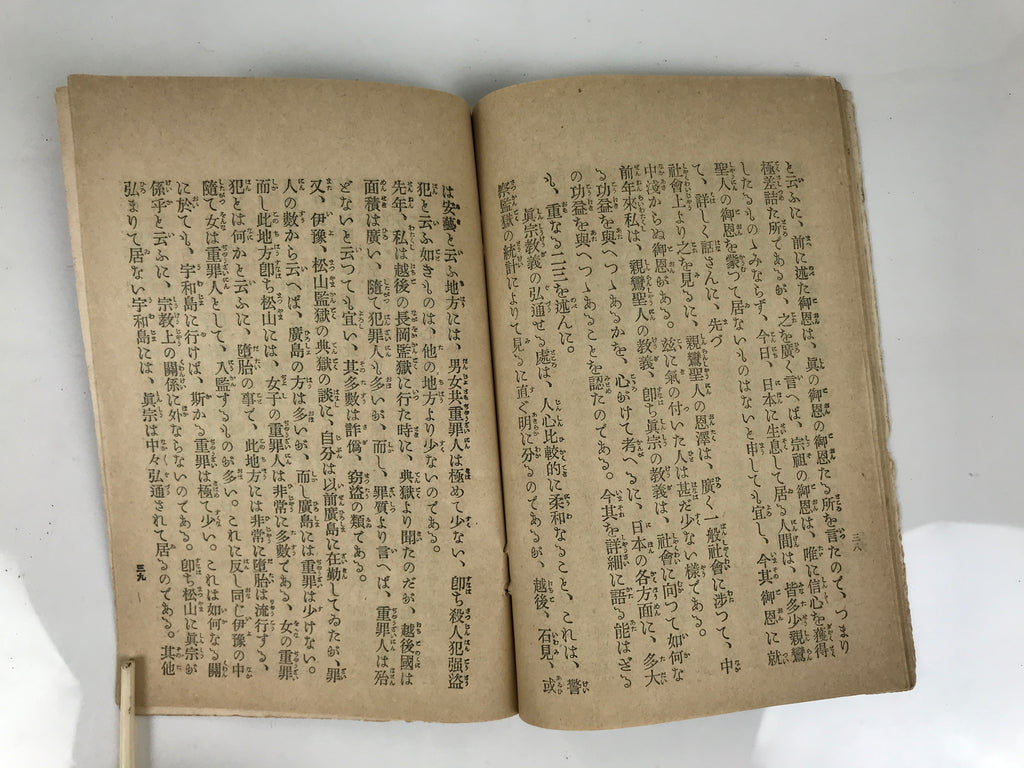 と云ふに、前に述た御恩は、眞の御恩の御恩たる所を言たので、つまり
極差詰た所であるが、之を廣く言へば、宗祖の御恩は、唯に信心を獲得
したるものゝみならず、今日、日本に生息して居る人間は、皆多少親鸞
聖人の御恩を蒙つて居ないものはないと申しても宜し、今其御恩に就
て、詳しく話さんに、先づ
社會上より之を見るに、親鸞聖人の恩澤は、廣く一般社會に渉つて、中
中淺からぬ御恩がある。玆に氣の付いた人は甚だ少ない樣である。
前年來私は、親鸞聖人の教義、卽ち眞宗の教義は、社會に向つて如何な
る功益を與へつゝあるかを、心がけて考へるに、日本の各方面に、多大
の功益を與へつゝあることを認たのである。今其を詳細に語る能はざる
も、重なる二三を述んに。
眞宗教義の弘通せる處は、人心比較的に柔和なること、これは、警
察監獄の統計によりて見るに直ぐ明に分るのであるが、越後、石見、或
三八
は安藝と云ふ地方には、男女共重罪人は極めて少ない、卽ち殺人犯强盜
犯と云ふ如きものは、他の地方より少ないのである。
先年、私は越後の長岡監獄に行た時に、典獄より聞たのだが、越後國は
面積は廣い、隨て犯罪人も多いが、而し、罪質より言へば、重罪人は殆
どないと云つても宜い、其多數は詐僞、竊盜の類である。
又、伊豫、松山監獄の典獄の談に、自分は以前廣島に在勤してゐたが、罪
人の數から云へば、廣島の方は多いが、而し廣島には重罪は少けない。
而し此地方卽ち松山には、女子の重罪人は非常に多數である、女の重罪
犯とは何かと云ふに、墮胎の事で、此地方には非常に墮胎は流行する、
隨て女は重罪人として、入監するものが多い。これに反し同じ伊豫の中
に於ても、宇和島に行けば、斯かる重罪は極て少い。これは如何なる關
係乎と云ふに、宗教上の關係に外ならないのである。卽ち松山に眞宗が
弘まりて居ない宇和島には、眞宗は中々弘通されて居るのである。其他
三九